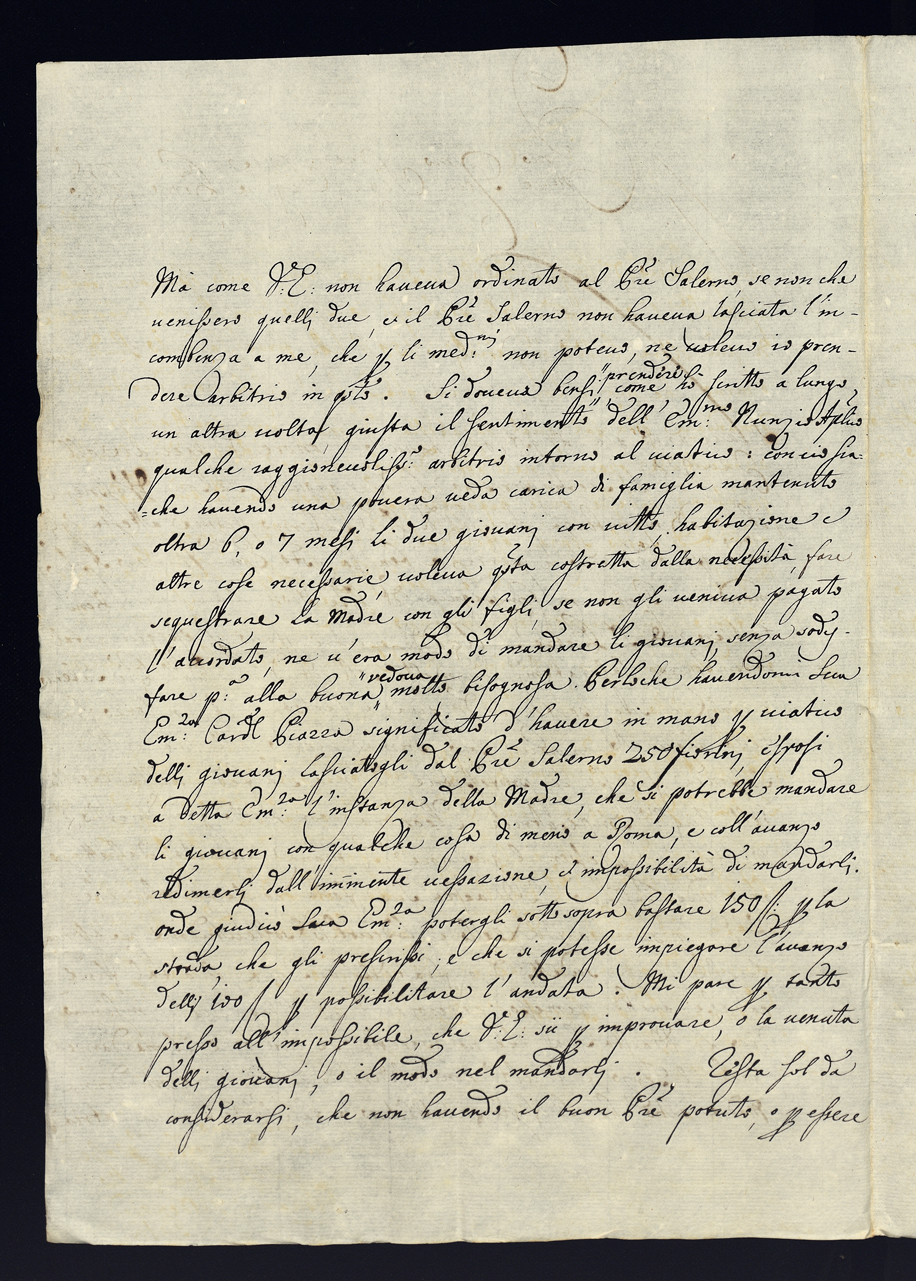 Mà come V.E: non haueua ordinato al Prē Salerno, se non che
venissero quelli due, et il Prē Salerno non haueua lasciata l'in-
combenza a me, che p li med:ni non poteuo, ne uoleuo io pren-
dere arbitrio in qsto. Si doueua bensi, "prendere" come hò scritto a lungo
un altra uolta, giusta il sentimento dell' Em:mo Nunzio Aplico
qualche raggioneuoliss:o arbitrio intorno al uiatico: conciosia=
=che hauendo una pouera veda carica di famiglia mantenuto
oltra 6, o 7 mesi li due giouanj con uitto, habitazione e
altre cose necessarie uoleua qsta costretta dalla necessità, fare
sequestrare la Madre con gli figlj, se non gli ueniua pagato
l'accordato, ne u'era modo di mandare li giouanj, senza sodis-
fare p:a alla buona "vedoua" molto bisognosa. Perloche hauendomi Sua
Em:za Cardl Piazza significato d'hauere in mano p uiatico
dellj giouanj lasciatogli dal Prē Salerno 250 fiorinj, esposi
a detta Em:za l'instanza della Madre, che si potrebbe mandare
li giouanj con qualche cosa di meno a Roma, e coll'auanzo
redimerlj dall'imminente uessazione, et impossibilità di mandarlj.
onde giudicò Sua Em:za potergli sotto sopra bastare 150 f: p la
strada, che gli prescrissi, e che si potesse impiegare l'auanzo
dellj 100 f p possibilitare l'andata. Mi pare p tanto
presso all'impossibile, che V.E: sij p improuare, o la uenuta
dellj giouanj, o il modo nel mandarlj. Resta sol da
considerarsi, che non hauendo il buon Prē potuto, o p essere